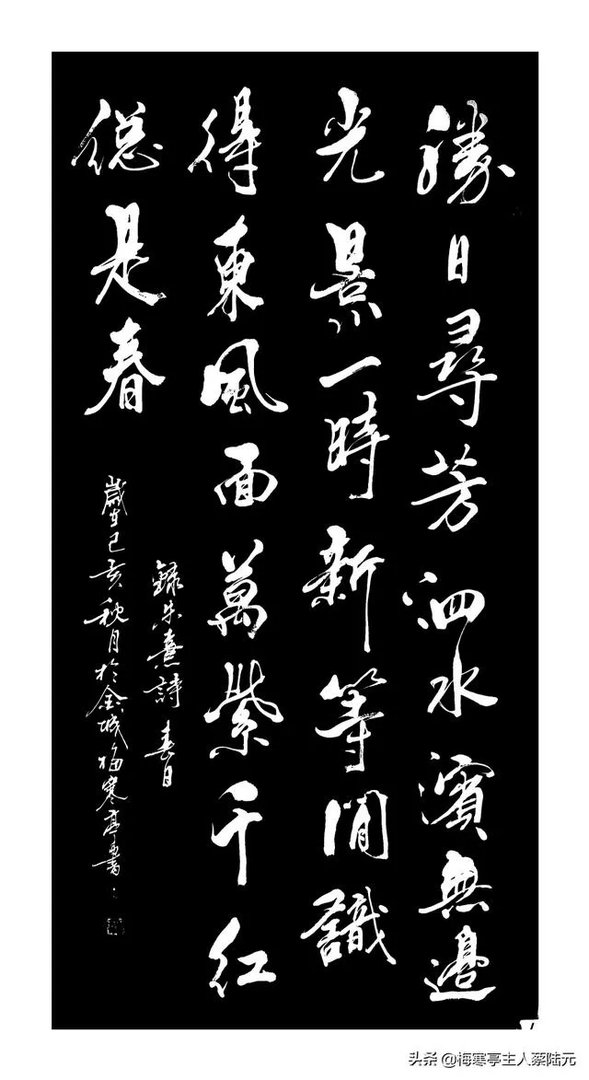 勝日尋芳泗水濱無邊
光景一時新等閒識
得東風面萬紫千紅
總是春
録朱熹詩春日
歲在己亥秋月於金城梅寒亭書
头条 @梅寒亭主人蔡陆元